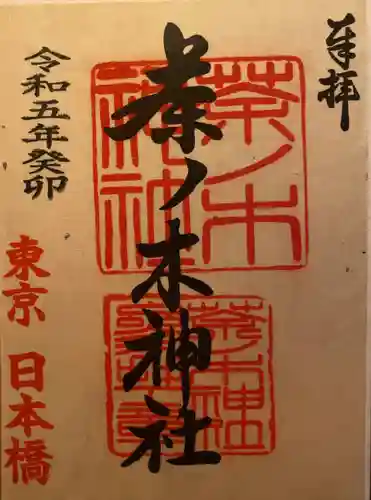 奉拝
茶ノ木神社
茶ノ木
神社
茶ノ木神
令和五年癸卯
東京 日本橋